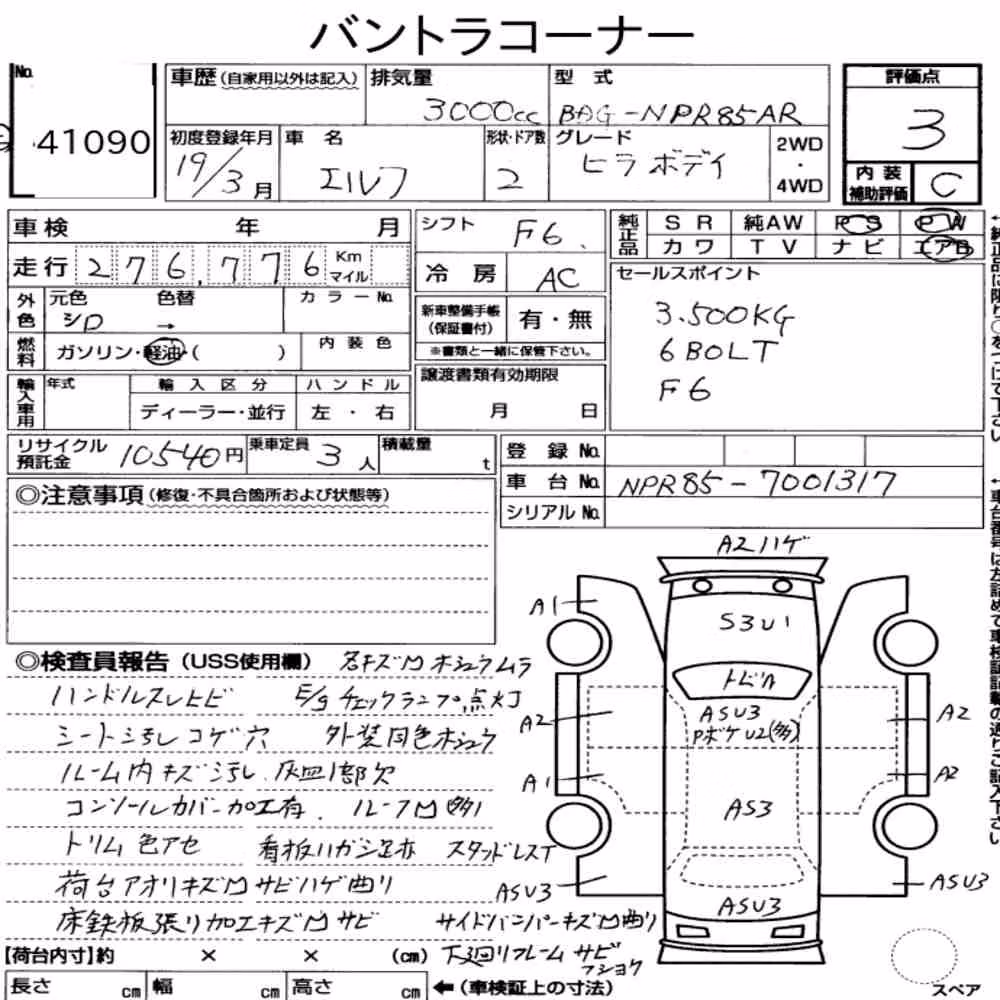 バントラコーナー
No.
41090
車歴(自家用以外は記入)
排気量
3000cc
型式
BDG-NPR85AR
評価点
3
初度登録年月
19/3月
車名
エルフ
形状・ドア数
2
グレード
ヒラボデイ
2WD
・
4WD
内装
補助評価
C
車検 年 月
シフト
F6.
純正品
SR 純AW PS PW
カワ TV ナビ エアB
走行 276,776 Km マイル
冷房
AC
セールスポイント
3.500KG
6BOLT
F6
外色
元色 色替
シロ →
カラーNo.
新車整備手帳
(保証書付)
有・無
※書類と一緒に保管下さい。
燃料
ガソリン・軽油・( )
内装色
輸入車用
年式
輸入区分
ディーラー・並行
ハンドル
左・右
譲渡書類有効期限
月 日
リサイクル
預託金
10540円
乗車定員
3人
積載量
t
登録No.
車台No.
NPR85-7001317
シリアルNo.
◎注意事項(修復・不具合箇所および状態等)
◎検査員報告(USS使用欄) 各キズ凹ホシュウムラ
ハンドルスレヒビ E/gチェックランプ点灯
シート汚レコゲ穴 外装同色ホシュウ
ルーム内キズ汚レ 灰皿1部欠
コンソールカバー加工有. ルーフ凹(多)
トリム色アセ 看板ハガシ跡 スタッドレスT
荷台アオリキズ凹サビハゲ曲り
床鉄板張り加工キズ凹サビ サイドバンパーキズ凹曲り
【荷台内寸】約 × × (cm) 下廻りフレームサビ
フショク
長さ cm 幅 cm 高さ cm ←(車検証上の寸法)
A2ハゲ
A1
S3U1
トビA
ASU3
PボケU2(多)
A2
A2
A1
A2
AS3
ASU3
ASU3
ASU3
スペア
↓純正品に限り○をつけて下さい
↓車台番号は左詰めで車検証記載の通りご記入下さい